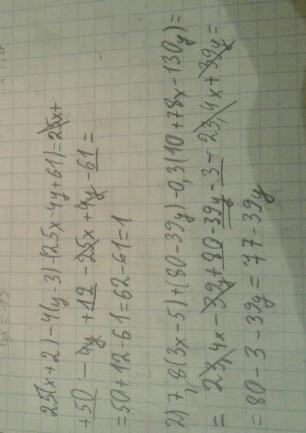 25(x+2)-4(y-3)-(25x-4y+61)=25x+
+50-4y+12-25x+4y-61=
=50+12-61=62-61=1
2) 7,8(3x-5)+(80-39y)-0,3(10+78x-130y)=
=23,4x-39y+80-39y-3-23,4x+39y=
=80-3-39y=77-39y